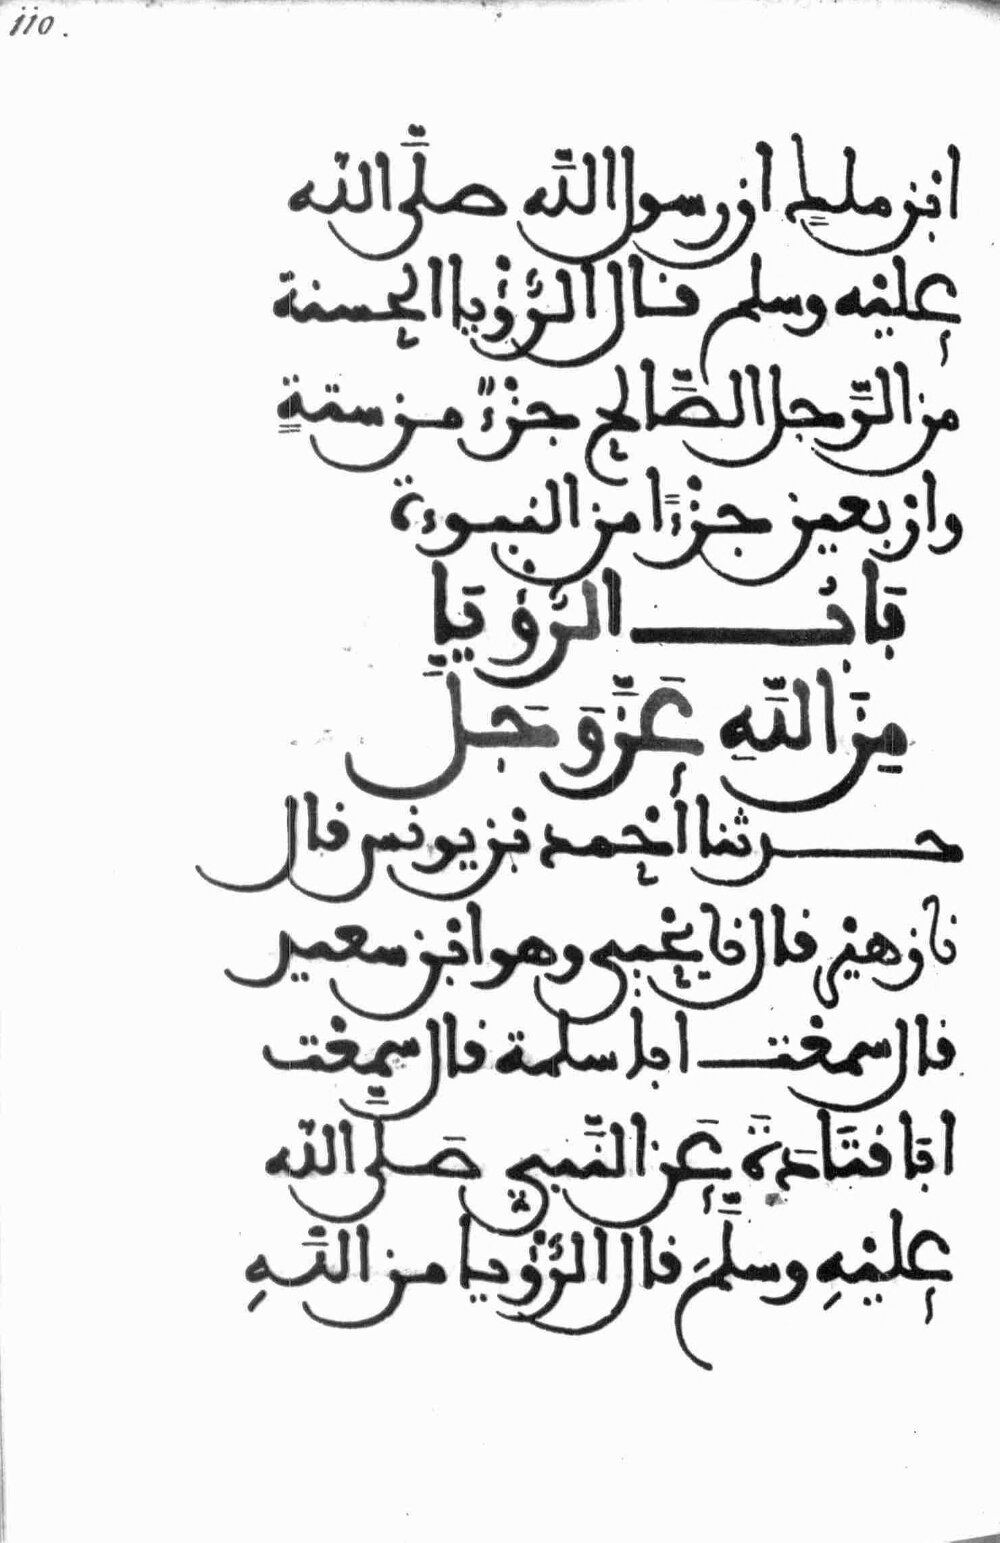 110.
ابن ملك ان رسول الله صلَّى الله
عليه وسلم فال الرُّؤْيا الحسنة
من الرّجل الصَّالح جزْءٌ من ستةٍ
وارْبعين جزْءًا من النبوءة
بَابُ الرُّؤْيَا
مِنَ اللَّهِ عَزَّ وَجَلَّ
حدثنا أحمد بن يونس فال
نا زهيْر فال نا يحْيى وهو ابْن سعيد
فال سمعْت ابا سلمة فال سمِعْت
ابَا فتَادَةَ عَن النَّبي صَلَّى الله
عليْهِ وسلَّمَ فال الرُّؤْيا من اللَّهِ